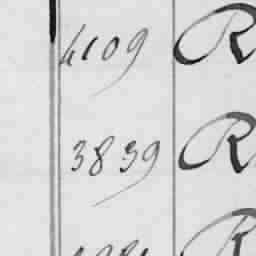 4109 R
3839 R
R